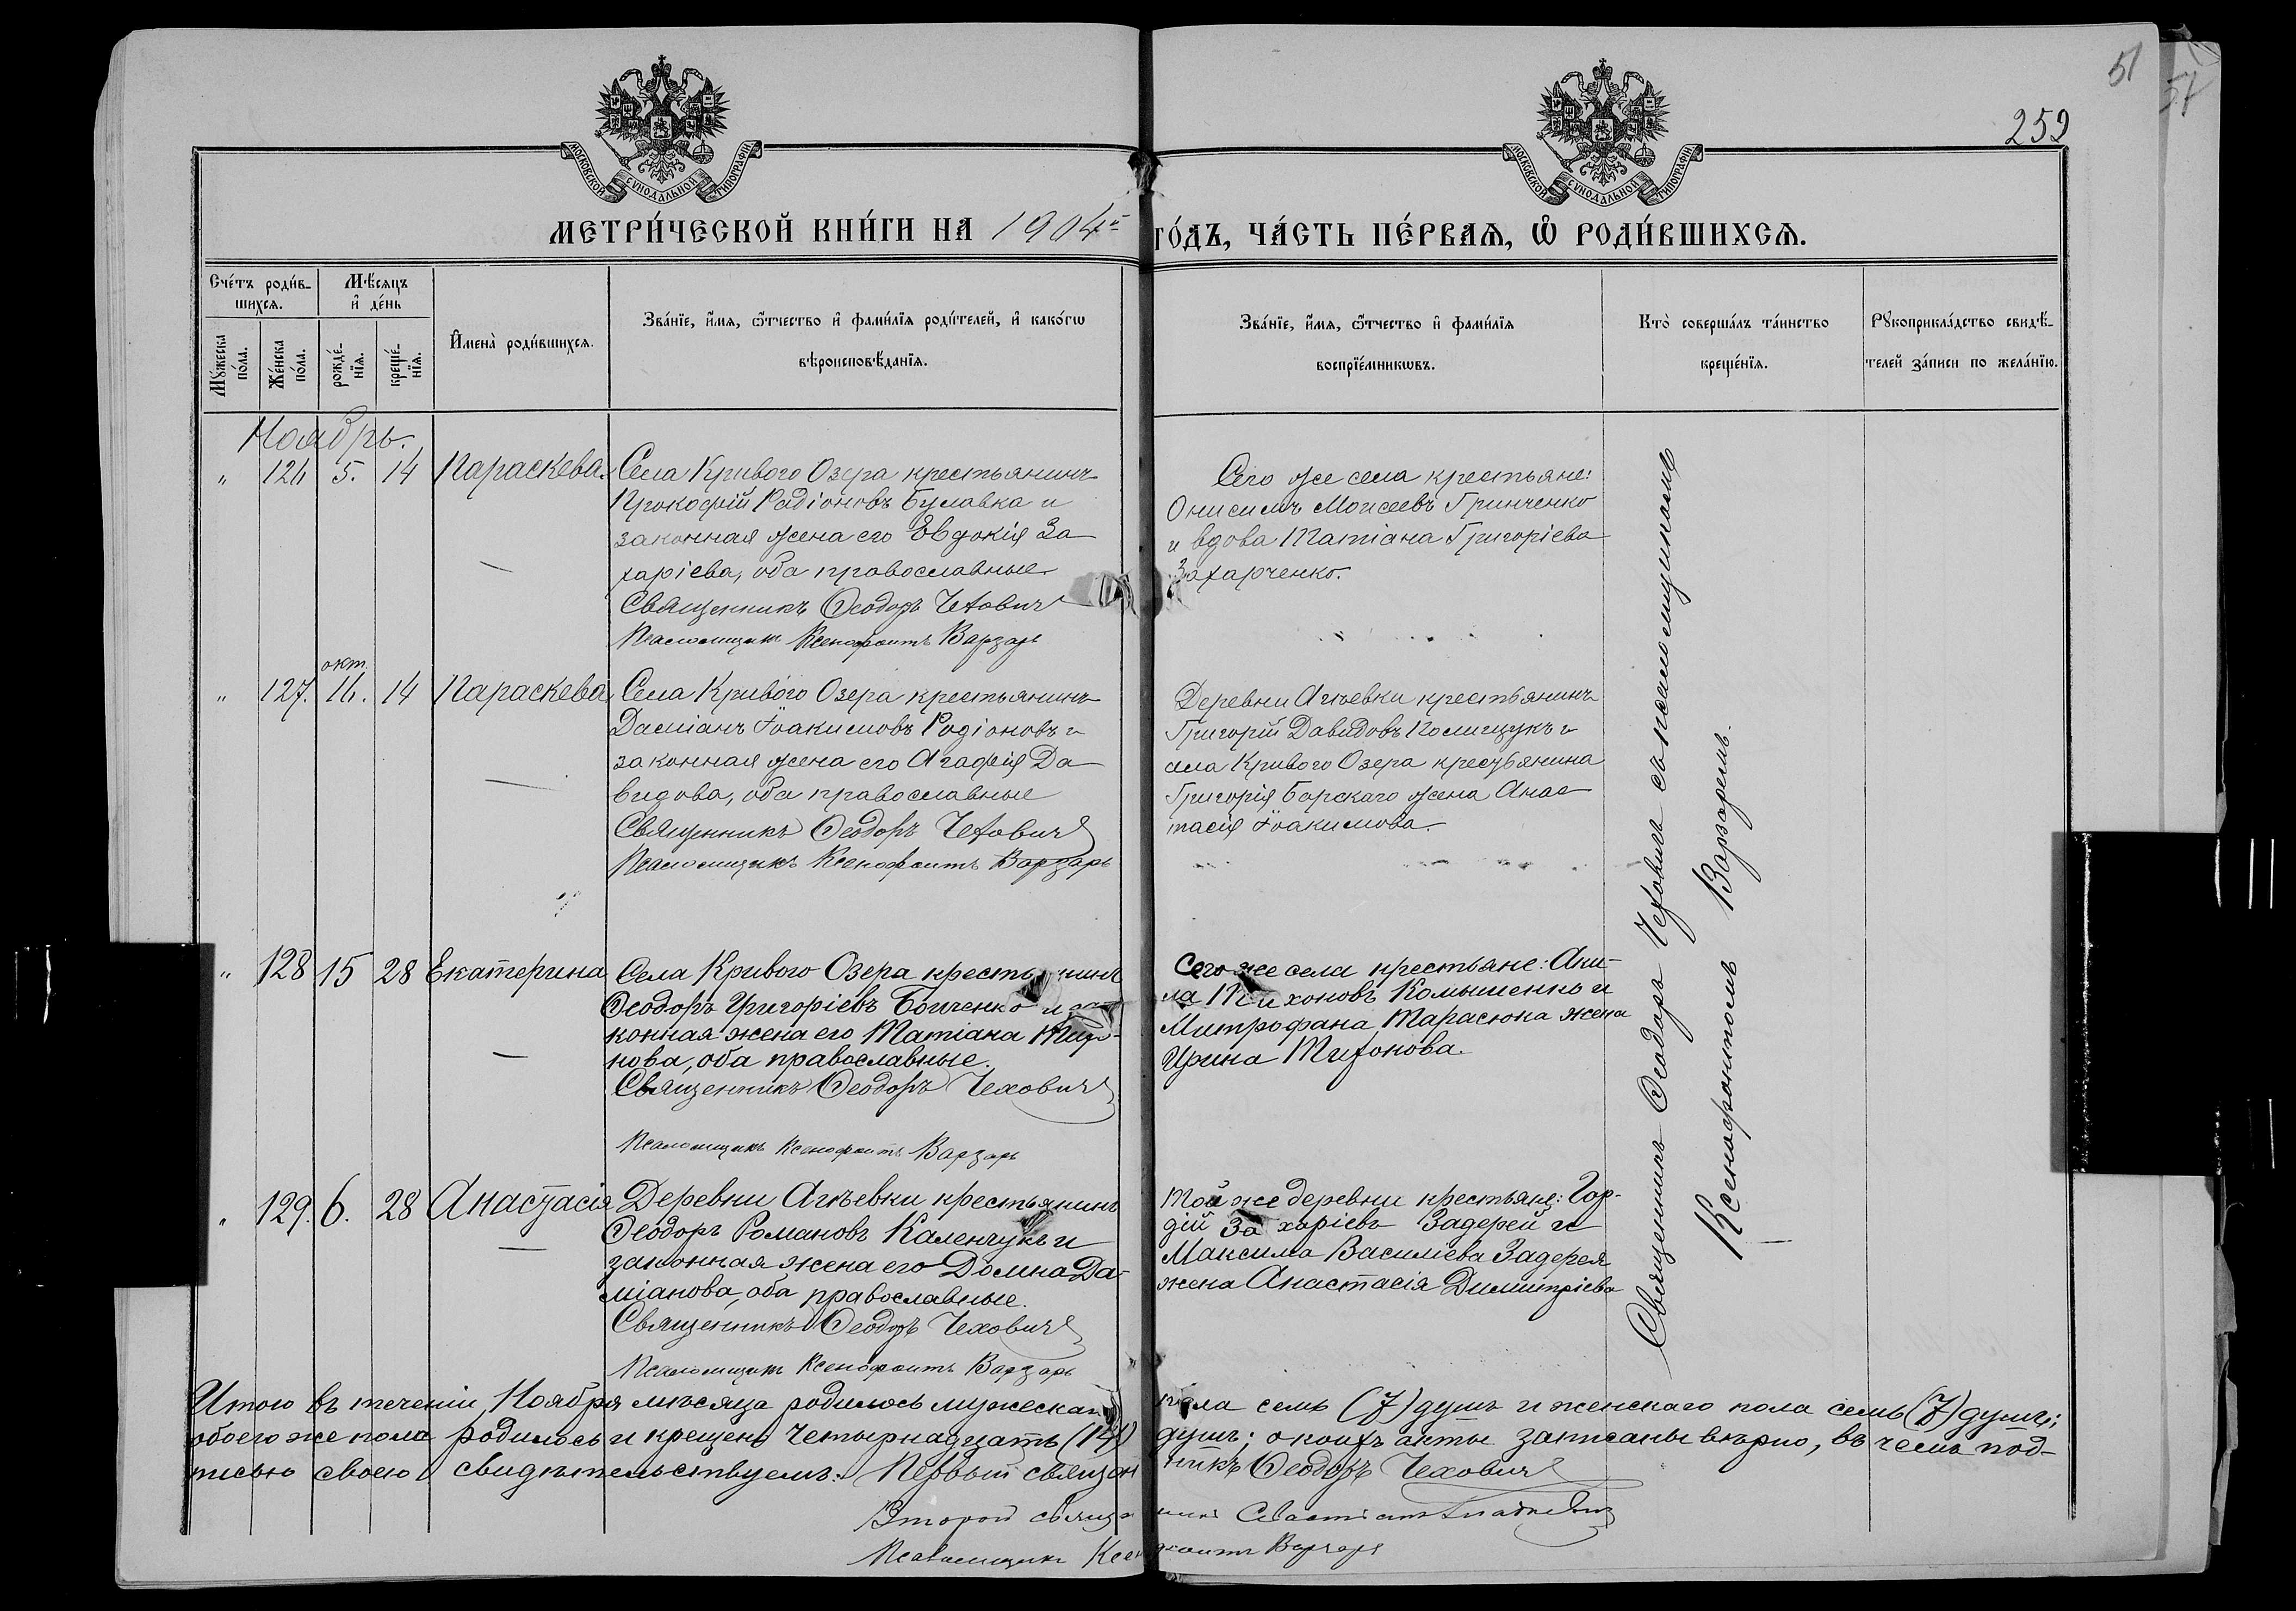 51
57
252
МОСКОВСКОЙ СѴНОДАЛЬНОЙ ТИПОГРАФІИ
МОСКОВСКОЙ СѴНОДАЛЬНОЙ ТИПОГРАФІИ
МЕТРИ́ЧЕСКОЙ КНИ́ГИ НА 1904й
ГО́ДЪ, ЧА́СТЬ ПЕ́РВАѦ, Ѡ҆ РОДИ́ВШИХСѦ.
Сче́тъ роди́в-
шихсѧ.
Мѣ́сѧцъ
и҆ де́нь
Мꙋ́жеска по́ла.
Же́нска по́ла.
рожде́-
нїѧ.
креще́-
нїѧ.
И҆мена̀ роди́вшихсѧ.
Зва́нїе, и҆́мѧ, ѻ҆́тчество и҆ фами́лїѧ роди́телей, и҆ како́гѡ
вѣроисповѣ́данїѧ.
Зва́нїе, и҆́мѧ, ѻ҆́тчество и҆ фами́лїѧ
воспрїе́мникѡвъ.
Кто̀ соверша́лъ та́инство
креще́нїѧ.
Рꙋкоприкла́дство свидѣ́-
телей за́писи по жела́нїю.
Ноябрь.
„ 126 5. 14 Параскева.
Села Кривого Озера крестьянинъ
Прокофій Радіоновъ Булавка и
законная жена его Евдокія За
харіева, оба православные
Священникъ Ѳеодоръ Чеховичъ
Псаломщикъ Ксенофонтъ Варзарь
Сего же села крестьяне:
Онисимъ Моисеевъ Гринченко
и вдова Татіана Григоріева
Захарченко.
окт.
„ 127. 16. 14 Параскева
Села Кривого Озера крестьянинъ
Даміанъ Іоакимовъ Родіоновъ и
законная жена его Агафія Да
видова, оба православные
Священникъ Ѳеодоръ Чеховичъ
Псаломщикъ Ксенофонтъ Варзарь
Деревни Агѣевки крестьянинъ
Григорій Давидовъ Полищукъ и
села Кривого Озера крестьянина
Григорія Борскаго жена Анас
тасія Іоакимова.
„ 128 15 28 Екатерина
Села Кривого Озера крестьянинъ
Ѳеодоръ Григоріевъ Бойченко и за
конная жена его Татіана Миро-
нова, оба православные.
Священникъ Ѳеодоръ Чеховичъ
Псаломщикъ Ксенофонтъ Варзарь
Сего же села крестьяне: Аки-
ла Тихоновъ Комышенко и
Митрофана Тарасюка жена
Ирина Тихонова.
„ 129. 6. 28 Анастасія
Деревни Агѣевки крестьянинъ
Ѳеодоръ Романовъ Каленчукъ и
законная жена его Домна Да-
міанова, оба православные.
Священникъ Ѳеодоръ Чеховичъ
Псаломщикъ Ксенофонтъ Варзарь
Той же деревни крестьяне: Гор-
дій Захаріевъ Задерей и
Максима Василіева Задерея
жена Анастасія Димитріева
Священникъ Ѳеодоръ Чеховичъ съ псаломщикомъ
Ксенофонтомъ Варзаремъ.
Итого въ теченіи Ноября мѣсяца родилось мужескаго пола семь (7) душъ и женскаго пола семь (7) душъ;
обоего же пола родилось и крещено четырнадцать (14) душъ; о коихъ акты записаны вѣрно, въ чемъ под-
писью своею свидѣтельствуемъ: Первый священникъ Ѳеодоръ Чеховичъ
Второй священникъ
Псаломщикъ Ксенофонтъ Варзарь